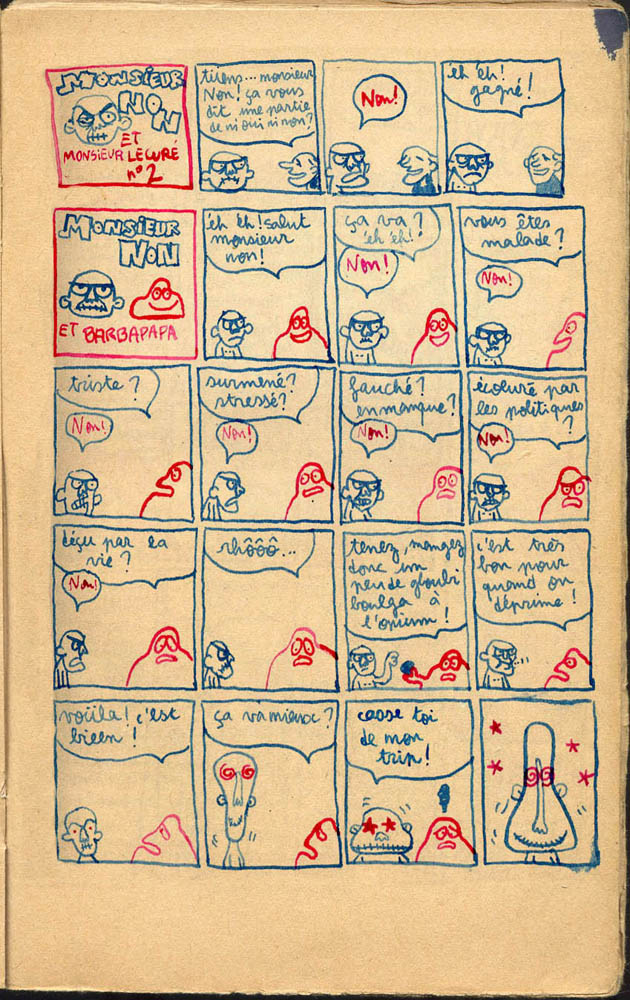 MONSIEUR
NON
ET
MONSIEUR LECURÉ
n°2
tiens... monsieur
Non! ça vous
dit une partie
de ni oui ni non?
Non!
eh eh!
gagné!
MONSIEUR
NON
ET BARBAPAPA
eh eh! salut
monsieur
non!
ça va?
eh eh!
Non!
vous êtes
malade?
Non!
triste?
Non!
surmené?
stressé?
Non!
fauché?
en manque?
Non!
écoeuré par
les politiques
?
Non!
déçu par la
vie?
Non!
rhôôô...
tenez, mangez
donc un
peu de gloubi
boulga à
l'opium!
c'est très
bon pour
quand on
déprime!
voiila! c'est
bieen!
ça va mieux?
casse toi
de mon
trip!